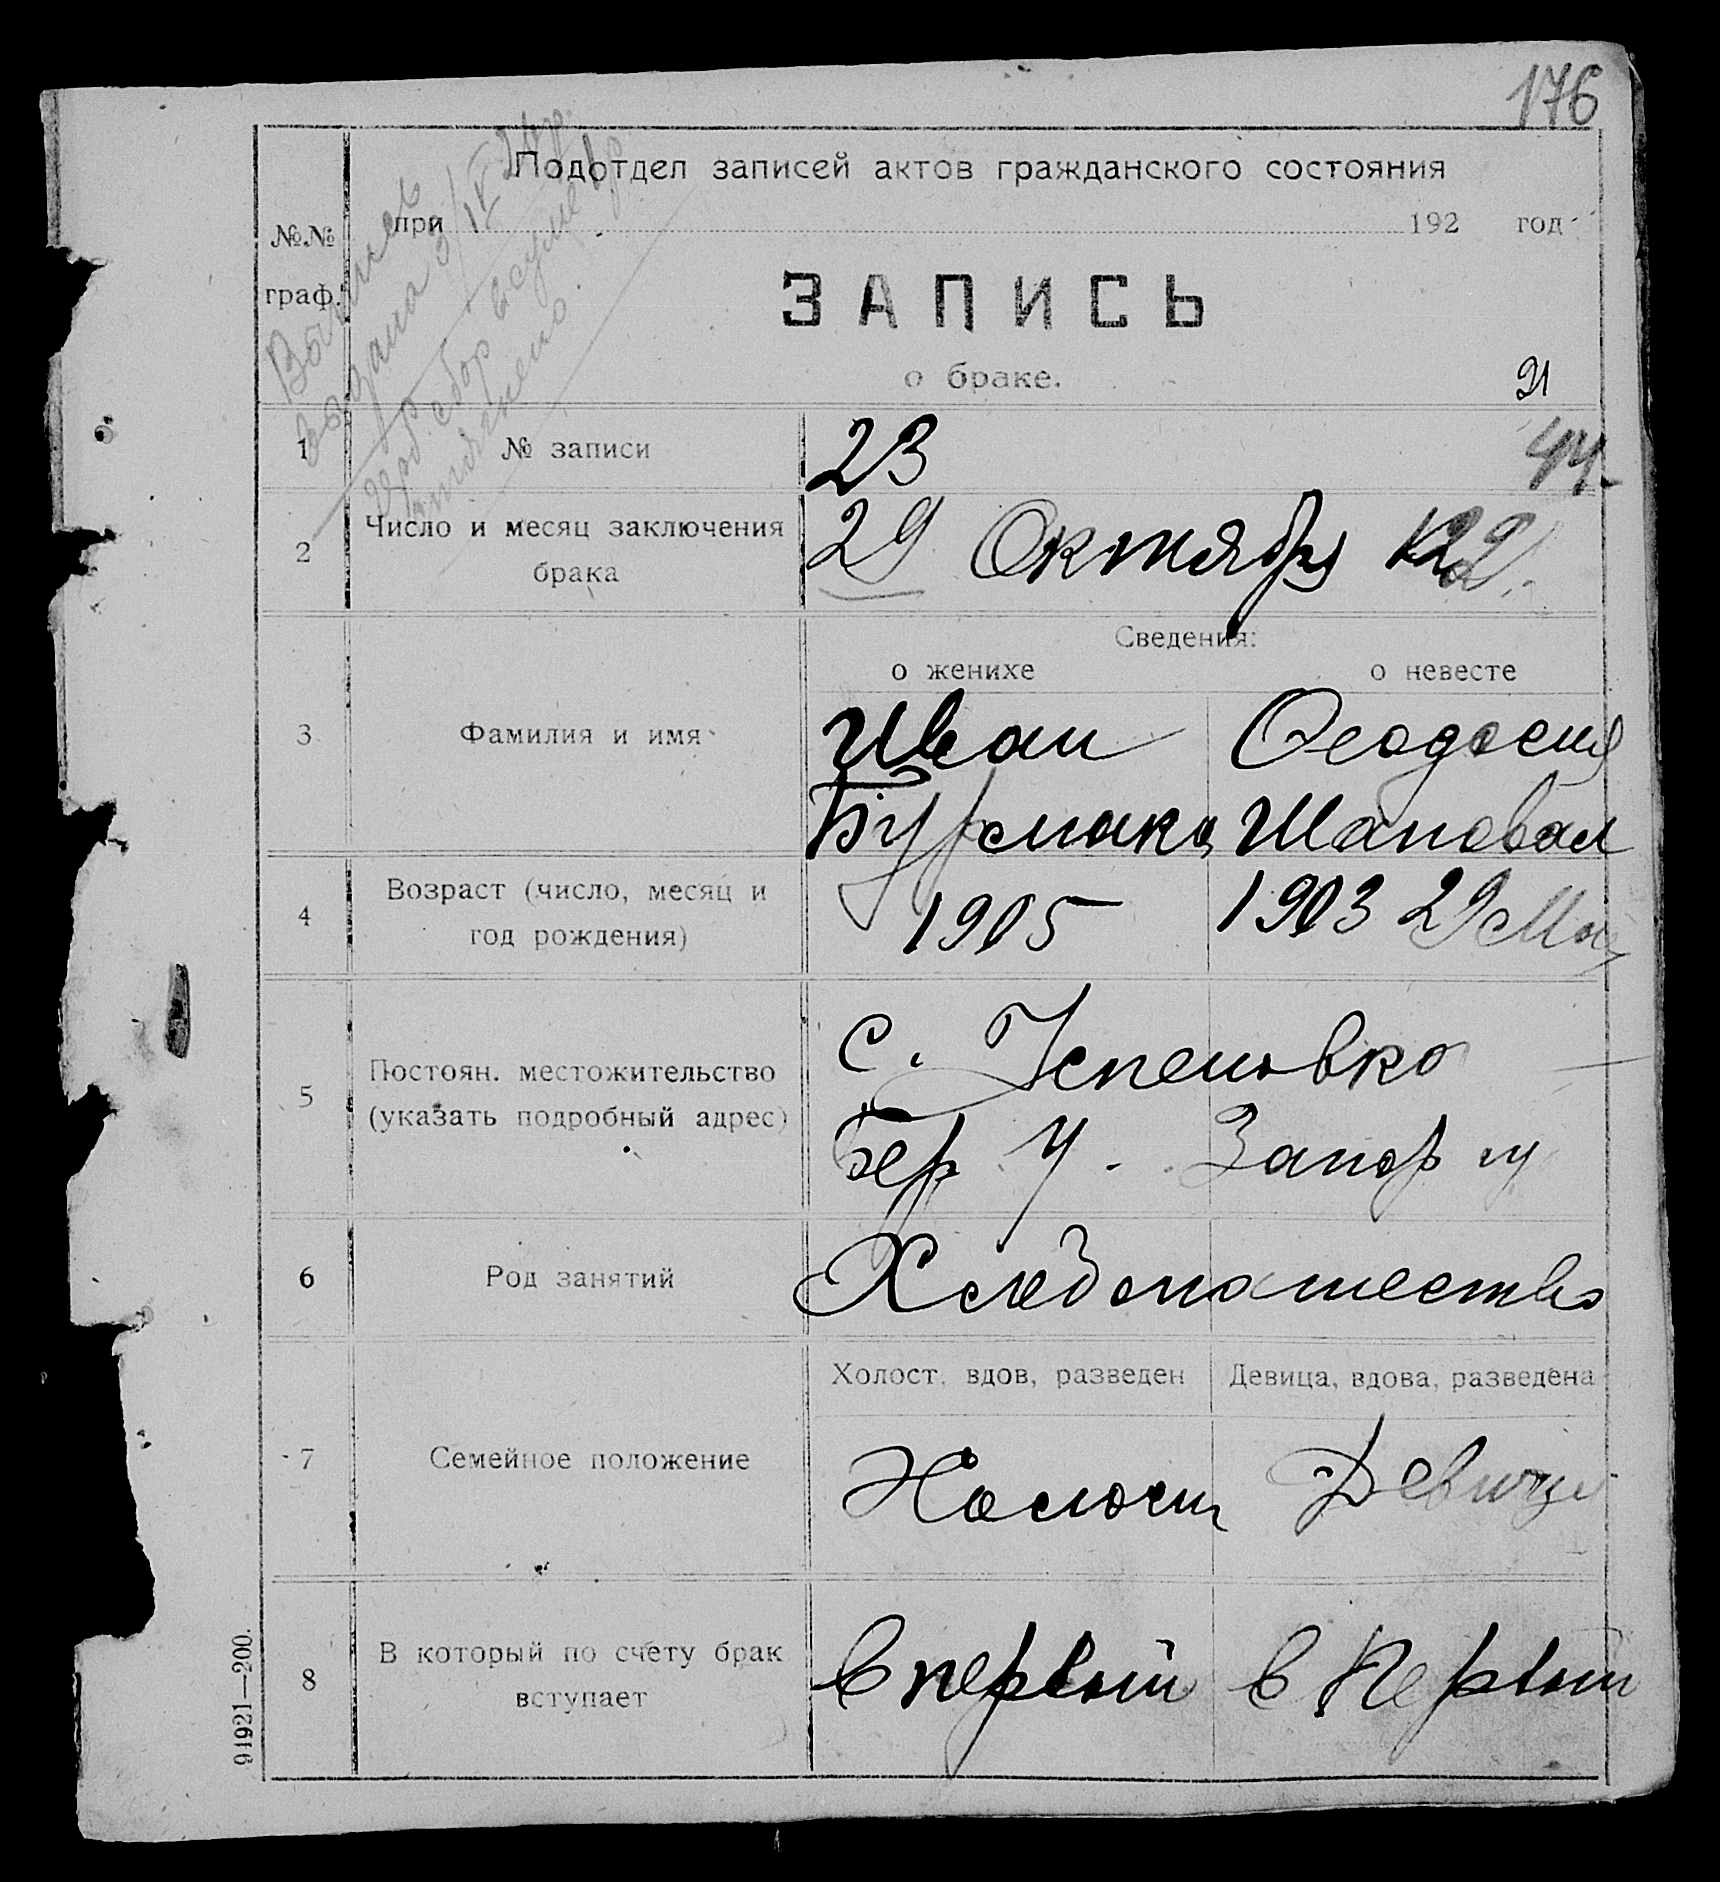 176
Подотдел записей актов гражданского состояния
при 192 год
№№ граф.
ЗАПИСЬ
о браке.
21
44
1 № записи 23
2 Число и месяц заключения брака 29 Октября 1922
Сведения:
о женихе о невесте
3 Фамилия и имя Иван Феодосия
Бурмака Шаповал
4 Возраст (число, месяц и год рождения) 1905 1903 29 Мая
5 Постоян. местожительство (указать подробный адрес) с. Успеновко
Бер У. Запор гу
6 Род занятий Хлебопашество
Холост, вдов, разведен Девица, вдова, разведена
7 Семейное положение Холост Девица
8 В который по счету брак вступает в первый в первый
91921—200.